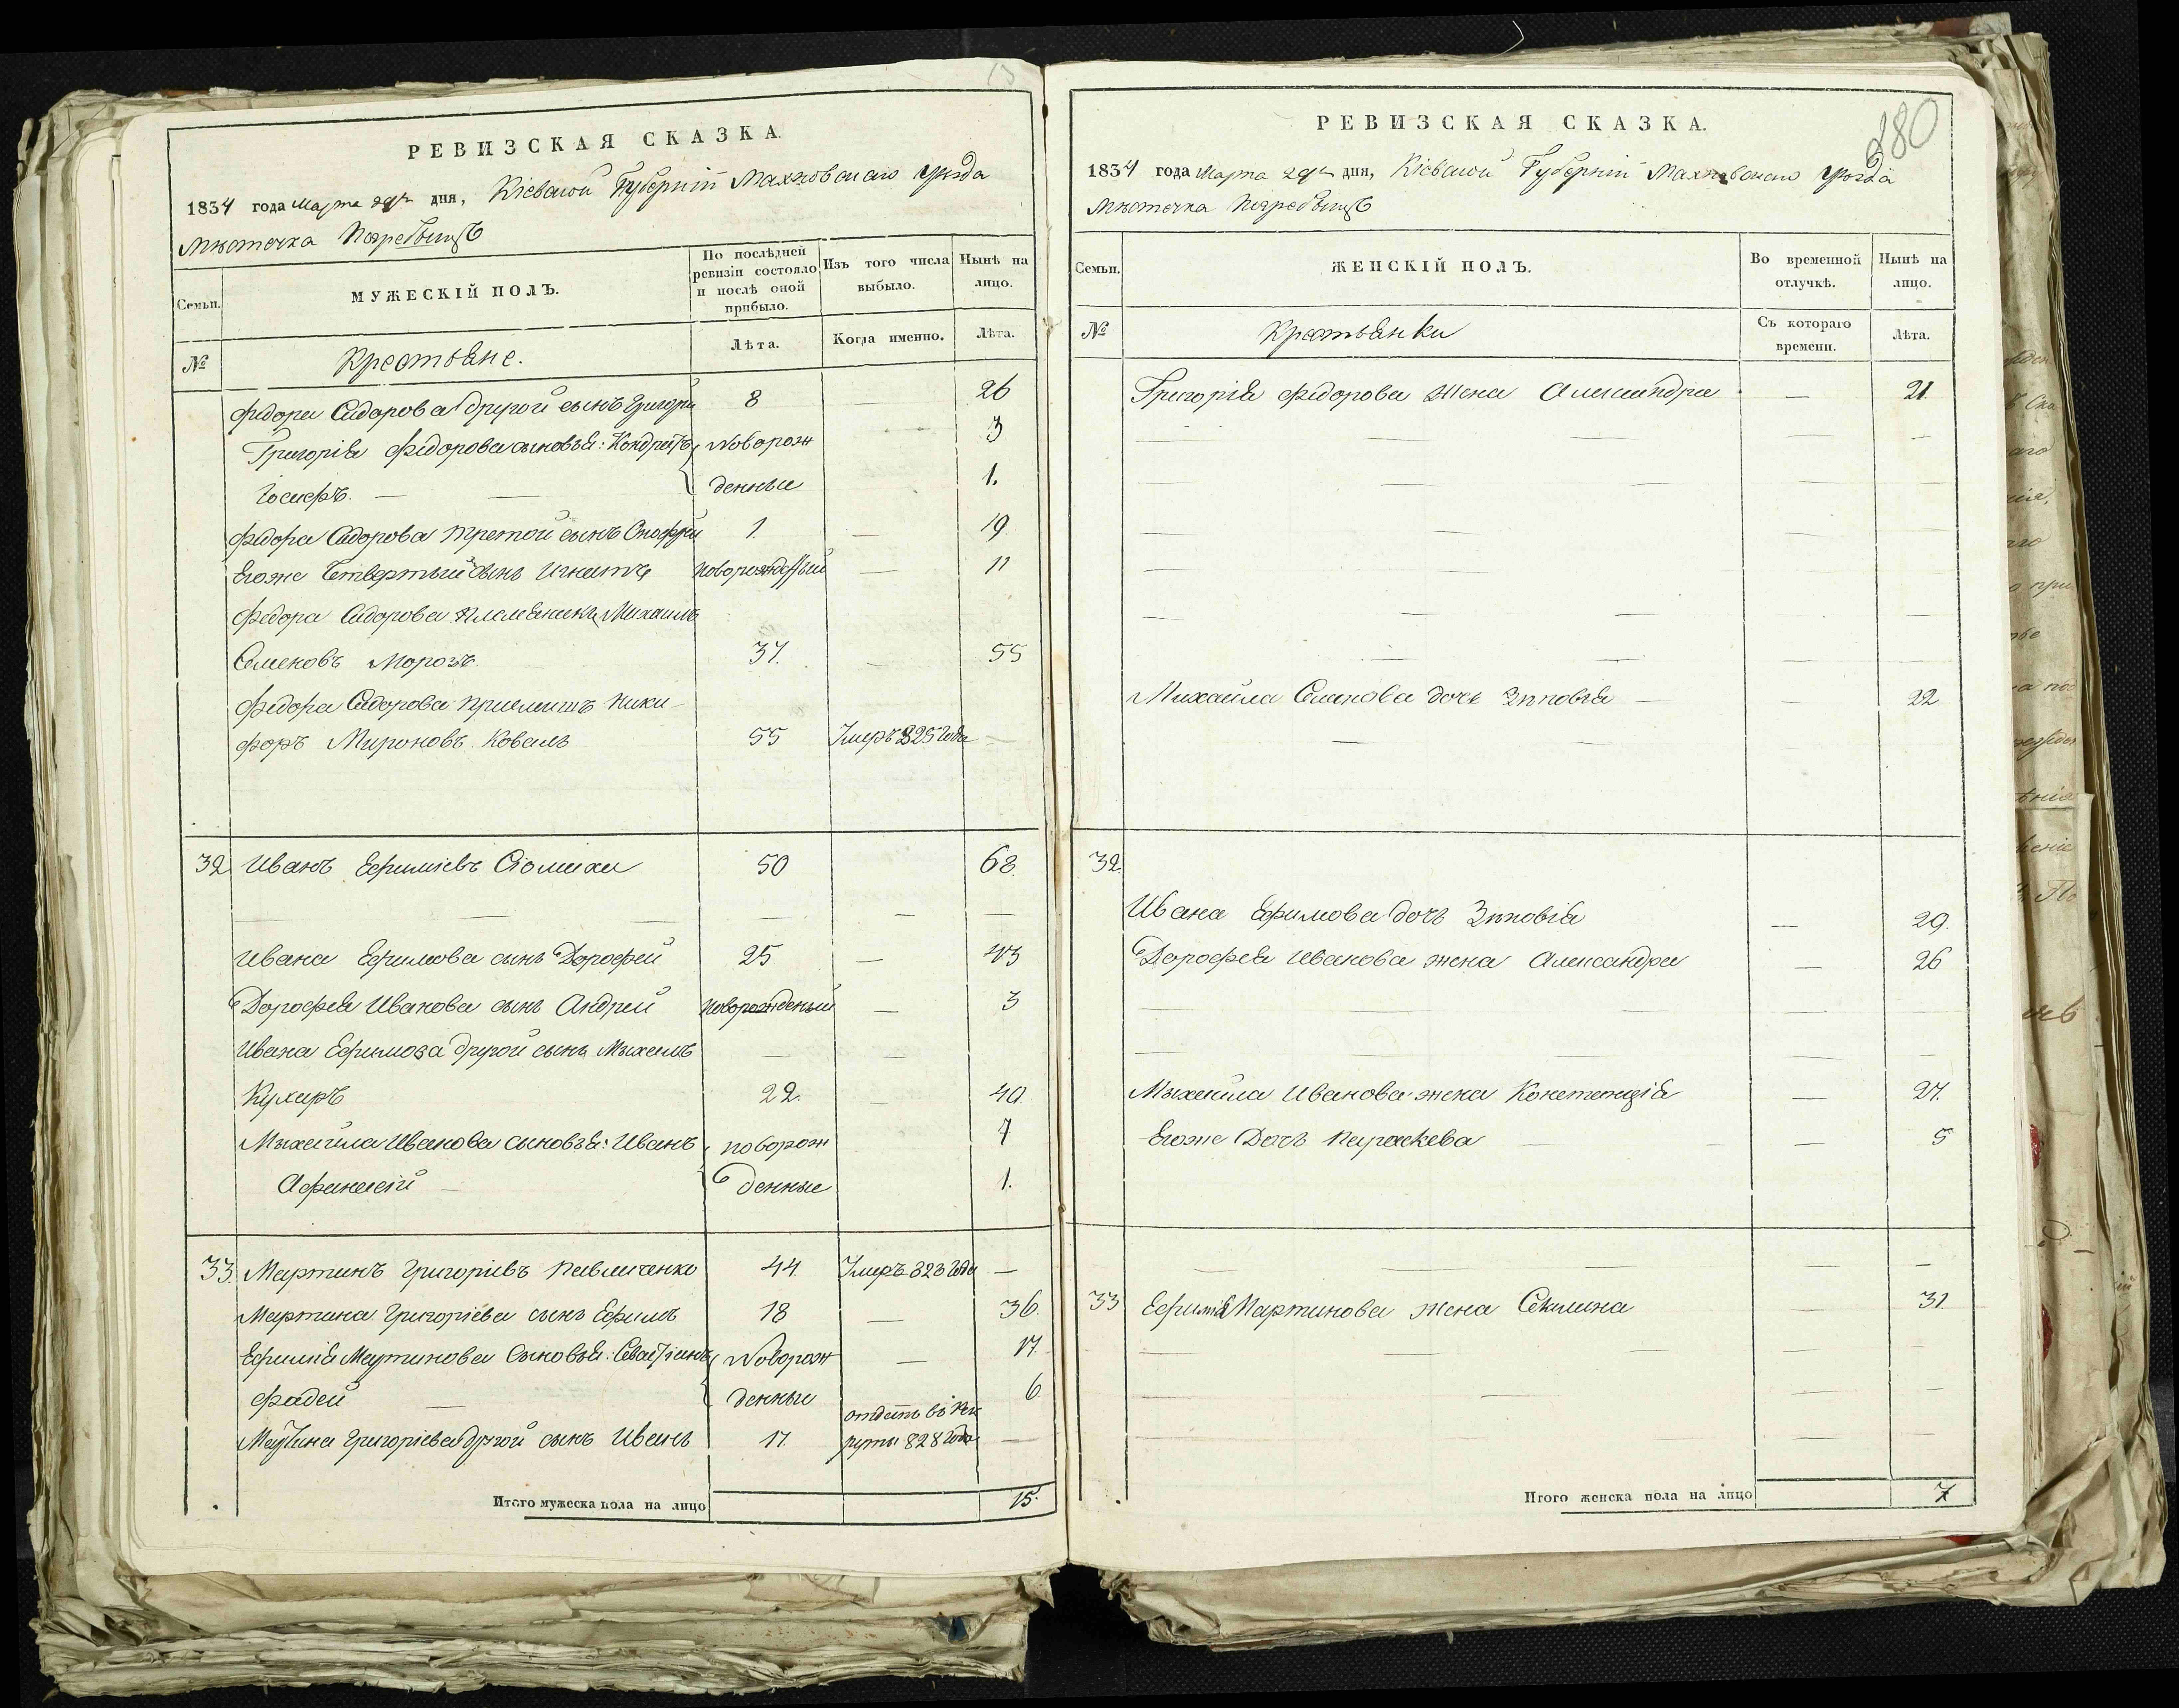 РЕВИЗСКАЯ СКАЗКА.
1834 года Марта дня, Кіевской Губерніи Махновскаго Уѣзда
Мѣстечка Погребищъ
Семьи.
МУЖЕСКІЙ ПОЛЪ.
По послѣдней ревизіи состояло и послѣ оной прибыло.
Изъ того числа выбыло.
Нынѣ на лицо.
№
Крестьяне.
Лѣта.
Когда именно.
Лѣта.
Федора Сидорова другой сынъ Григори 8 — 26
Григорія Федорова сыновья: Кондратъ Новорож 3
Іосифъ. — — денные 1.
Федора Сидорова третой сынъ Онофрій 1. — 19
Егоже Четвертый сынъ Игнатъ Новорожденный — 11
Федора Сидорова племянникъ Михаилъ
Семеновъ Морозъ 37. — 55
Федора Сидорова приемышъ Ники-
форъ Мироновъ Коваль 55 Умеръ 825 года —
32 Иванъ Ефиміевъ 50 68.
— — — — — —
Ивана Ефимова сынъ Дорофей 25 — 43
Дорофея Иванова сынъ Андрей Новорожденый — 3
Ивана Ефимова другой сынъ Михаилъ — —
Кухаръ 22. — 40
Михайла Иванова сыновья: Иванъ новорож 7
Афанасій — денные 1.
33. Мартинъ Григоріевъ Павличенко 44. Умеръ 823 года —
Мартина Григоріева сынъ Ефимъ 18 — 36.
Ефимія Мартинова Сыновья: Новорож — 17.
Фадей — денные 6.
отданъ въ рек
Мартина Григоріева другой сынъ Иванъ 17. руты 828 года —
Итого мужеска пола на лицо 15.
280
РЕВИЗСКАЯ СКАЗКА.
1834 года Марта дня, Кіевской Губерніи Махновскаго Уѣзда
Мѣстечка Погребищъ
Семьи.
ЖЕНСКІЙ ПОЛЪ.
Во временной отлучкѣ.
Нынѣ на лицо.
№
Крестьянки
Съ котораго времени.
Лѣта.
Григорія Федорова Жена Александра — 21
Михайла Семенова дочь Зиновія — — 22
32.
Ивана Ефимова дочь Зиновія — 29.
Дорофея Иванова жена Александра — 26
Михайла Иванова жена Констанція — 27.
Егоже Дочь Параскева — — 5
33 Ефимія Мартинова жена Секлина — 31
Итого женска пола на лицо 7